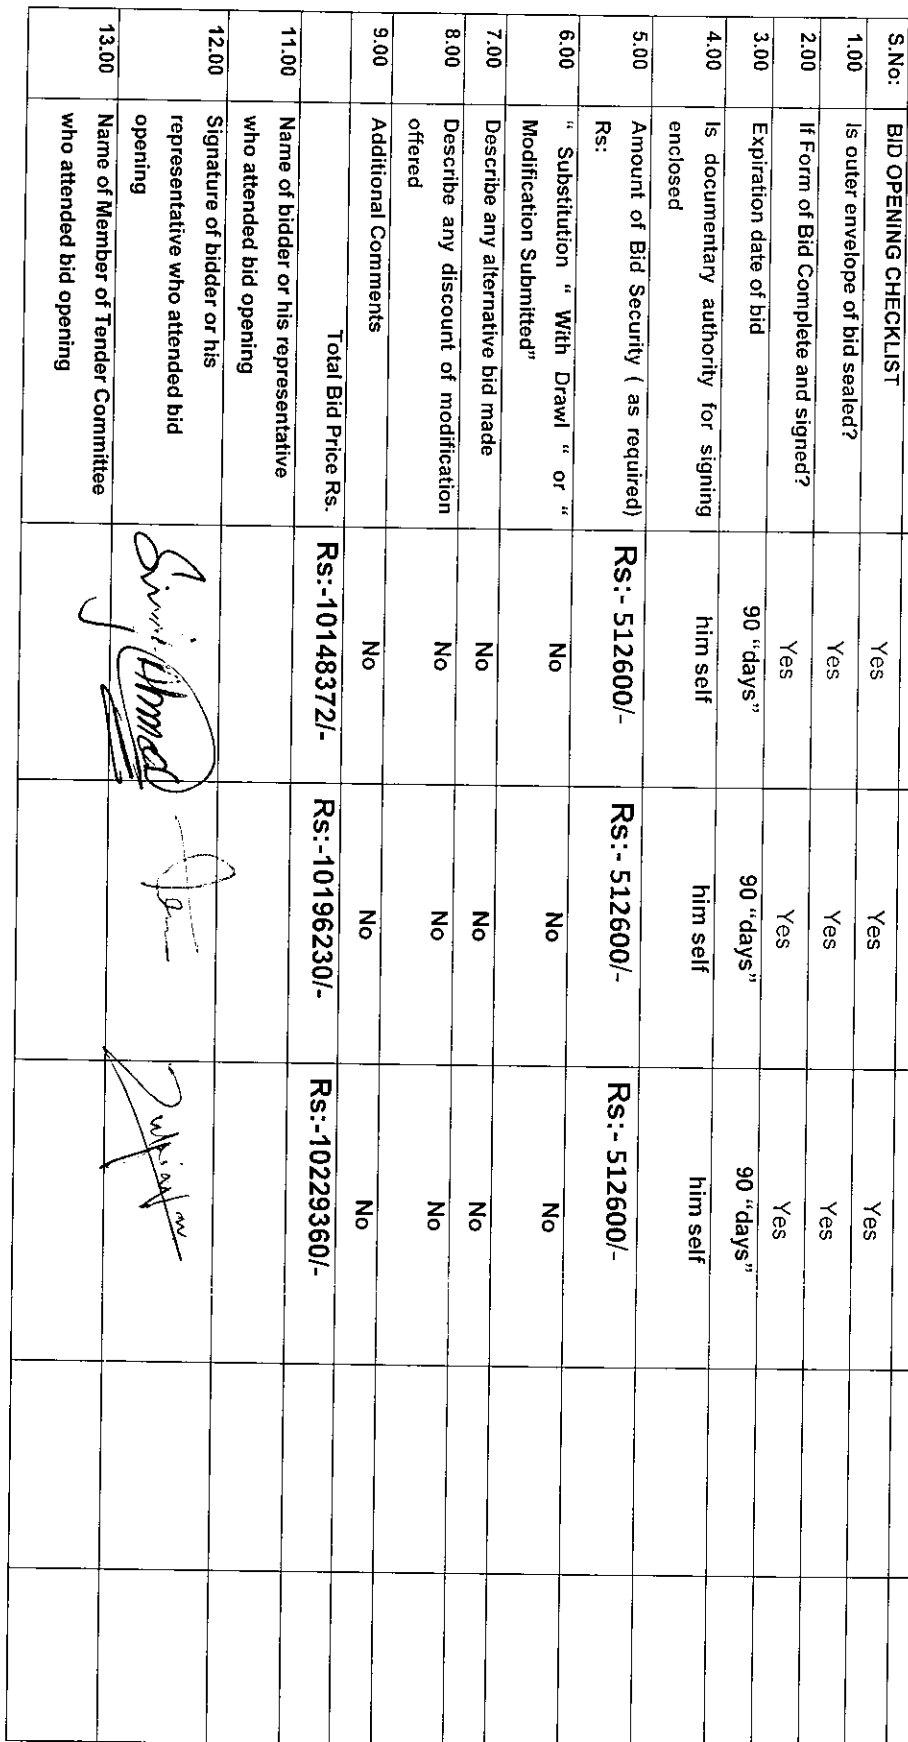 S.No: BID OPENING CHECKLIST
1.00 Is outer envelope of bid sealed? Yes Yes Yes
2.00 If Form of Bid Complete and signed? Yes Yes Yes
3.00 Expiration date of bid 90 “days” 90 “days” 90 “days”
4.00 Is documentary authority for signing
enclosed him self him self him self
5.00 Amount of Bid Security ( as required)
Rs: Rs:- 512600/- Rs:- 512600/- Rs:- 512600/-
6.00 “ Substitution “ With Drawl “ or “
Modification Submitted” No No No
7.00 Describe any alternative bid made No No No
8.00 Describe any discount of modification
offered No No No
9.00 Additional Comments No No No
Total Bid Price Rs. Rs:-10148372/- Rs:-10196230/- Rs:-10229360/-
11.00 Name of bidder or his representative
who attended bid opening
12.00 Signature of bidder or his
representative who attended bid
opening Ahmed
13.00 Name of Member of Tender Committee
who attended bid opening